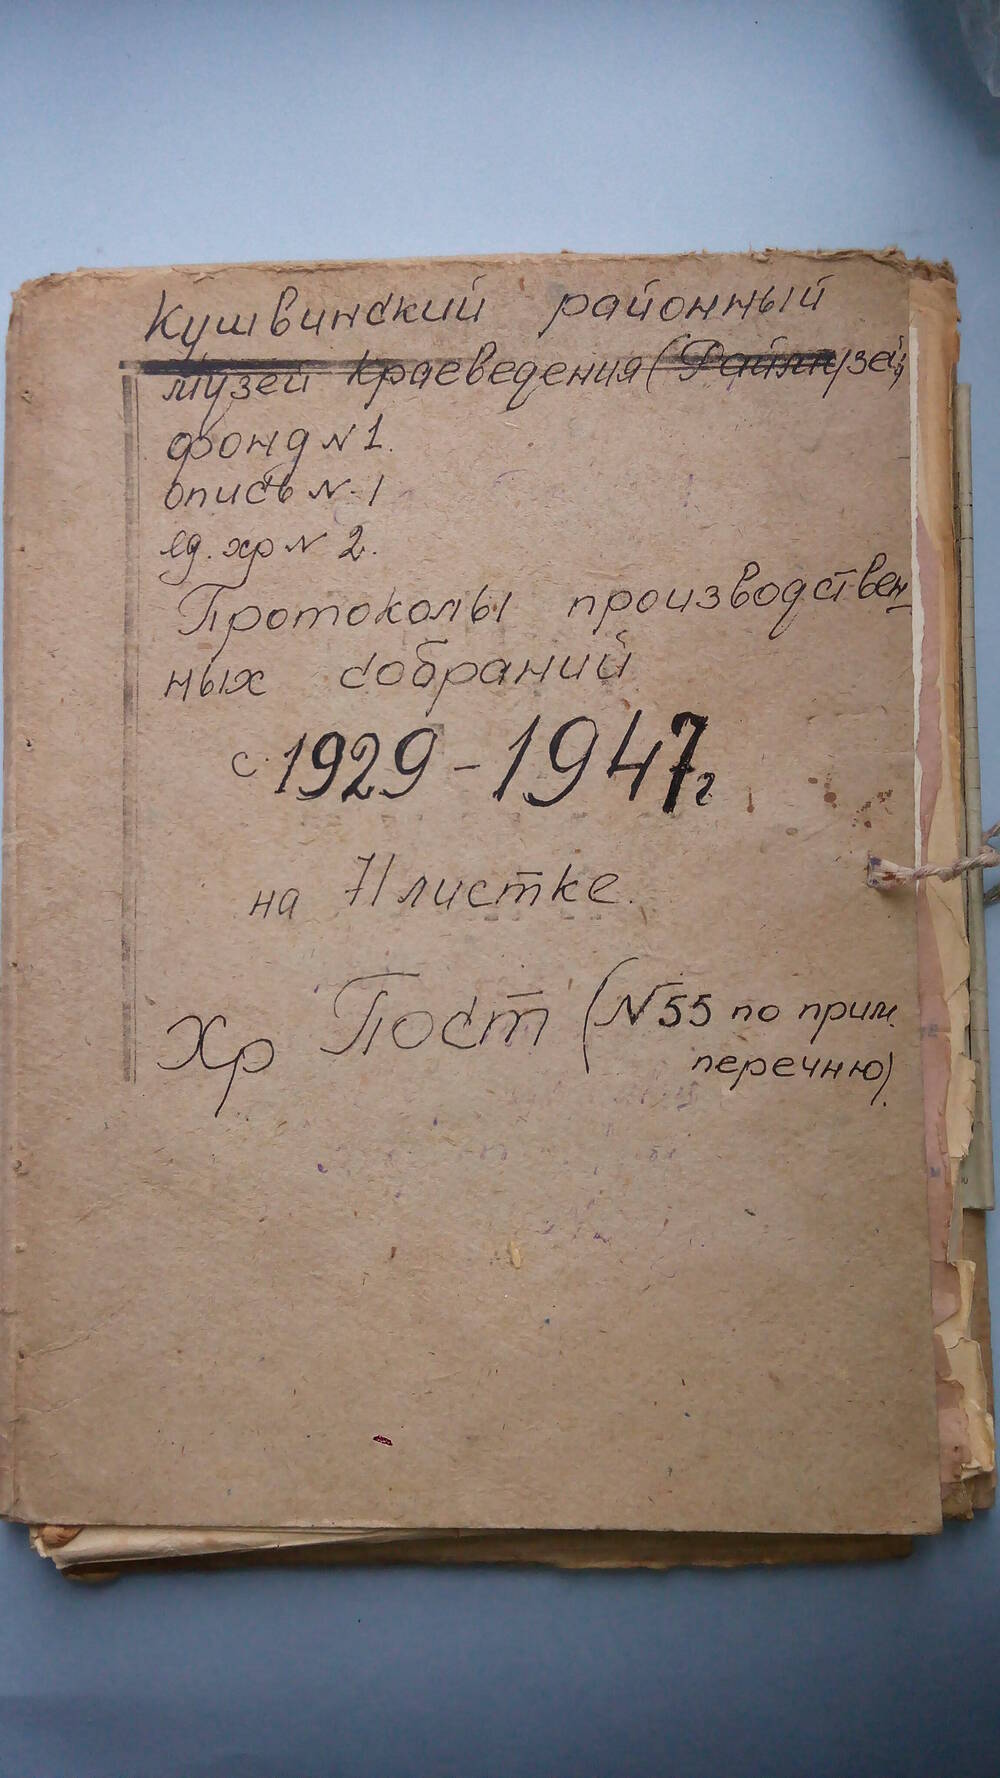 Кушвинский районный
музей краеведения (Раймузей)
фонд N 1.
опись N 1
ед. хр N 2.
Протоколы производствен-
ных собраний
с 1929 - 1947г
на 71 листке.
Хр Пост (N 55 по прим.
перечню).